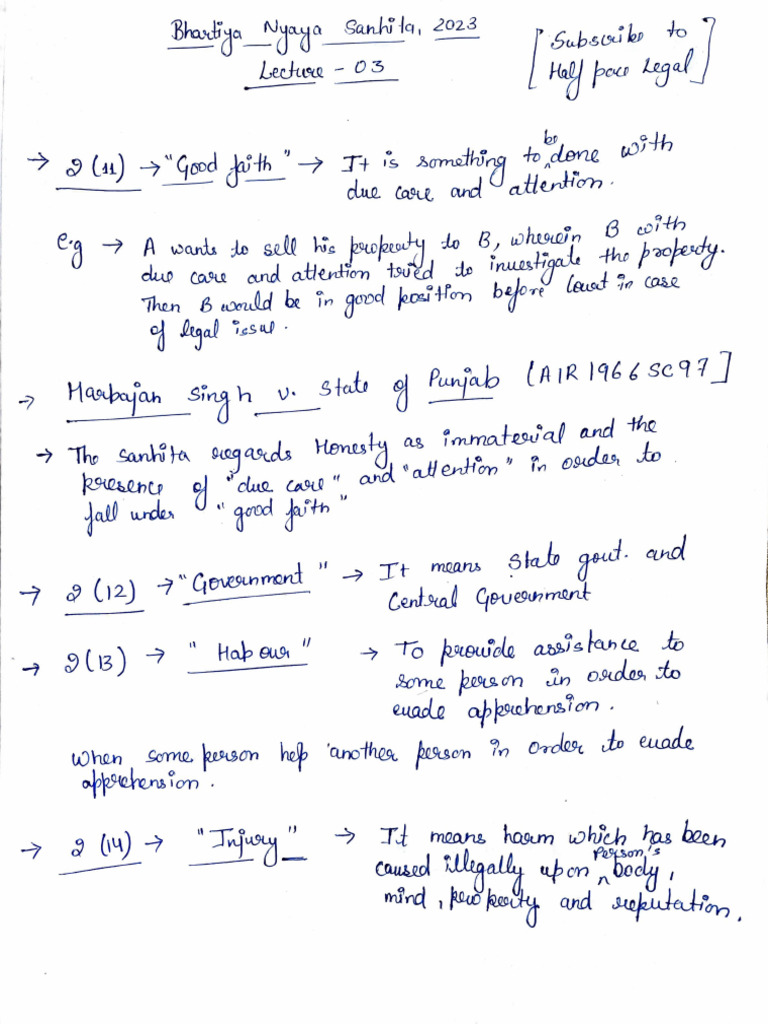 Bhartiya Nyaya Sanhita, 2023
Lecture - 03
[Subscribe to
Half pace Legal]
→ 2(11) → "Good faith" → It is something to be done with
due care and attention.
e.g → A wants to sell his property to B, wherein B with
due care and attention tried to investigate the property.
Then B would be in good position before Court in case
of legal issue.
→ Harbajan Singh v. State of Punjab [AIR 1966 SC 97]
→ The Sanhita regards Honesty as immaterial and the
presence of "due care" and "attention" in order to
fall under "good faith"
→ 2(12) → "Government" → It means State govt. and
Central Government
→ 2(13) → "Habour" → To provide assistance to
some person in order to
evade apprehension.
When some person help another person in order to evade
apprehension.
→ 2(14) → "Injury" → It means harm which has been
caused illegally upon person's body,
mind, property and reputation.